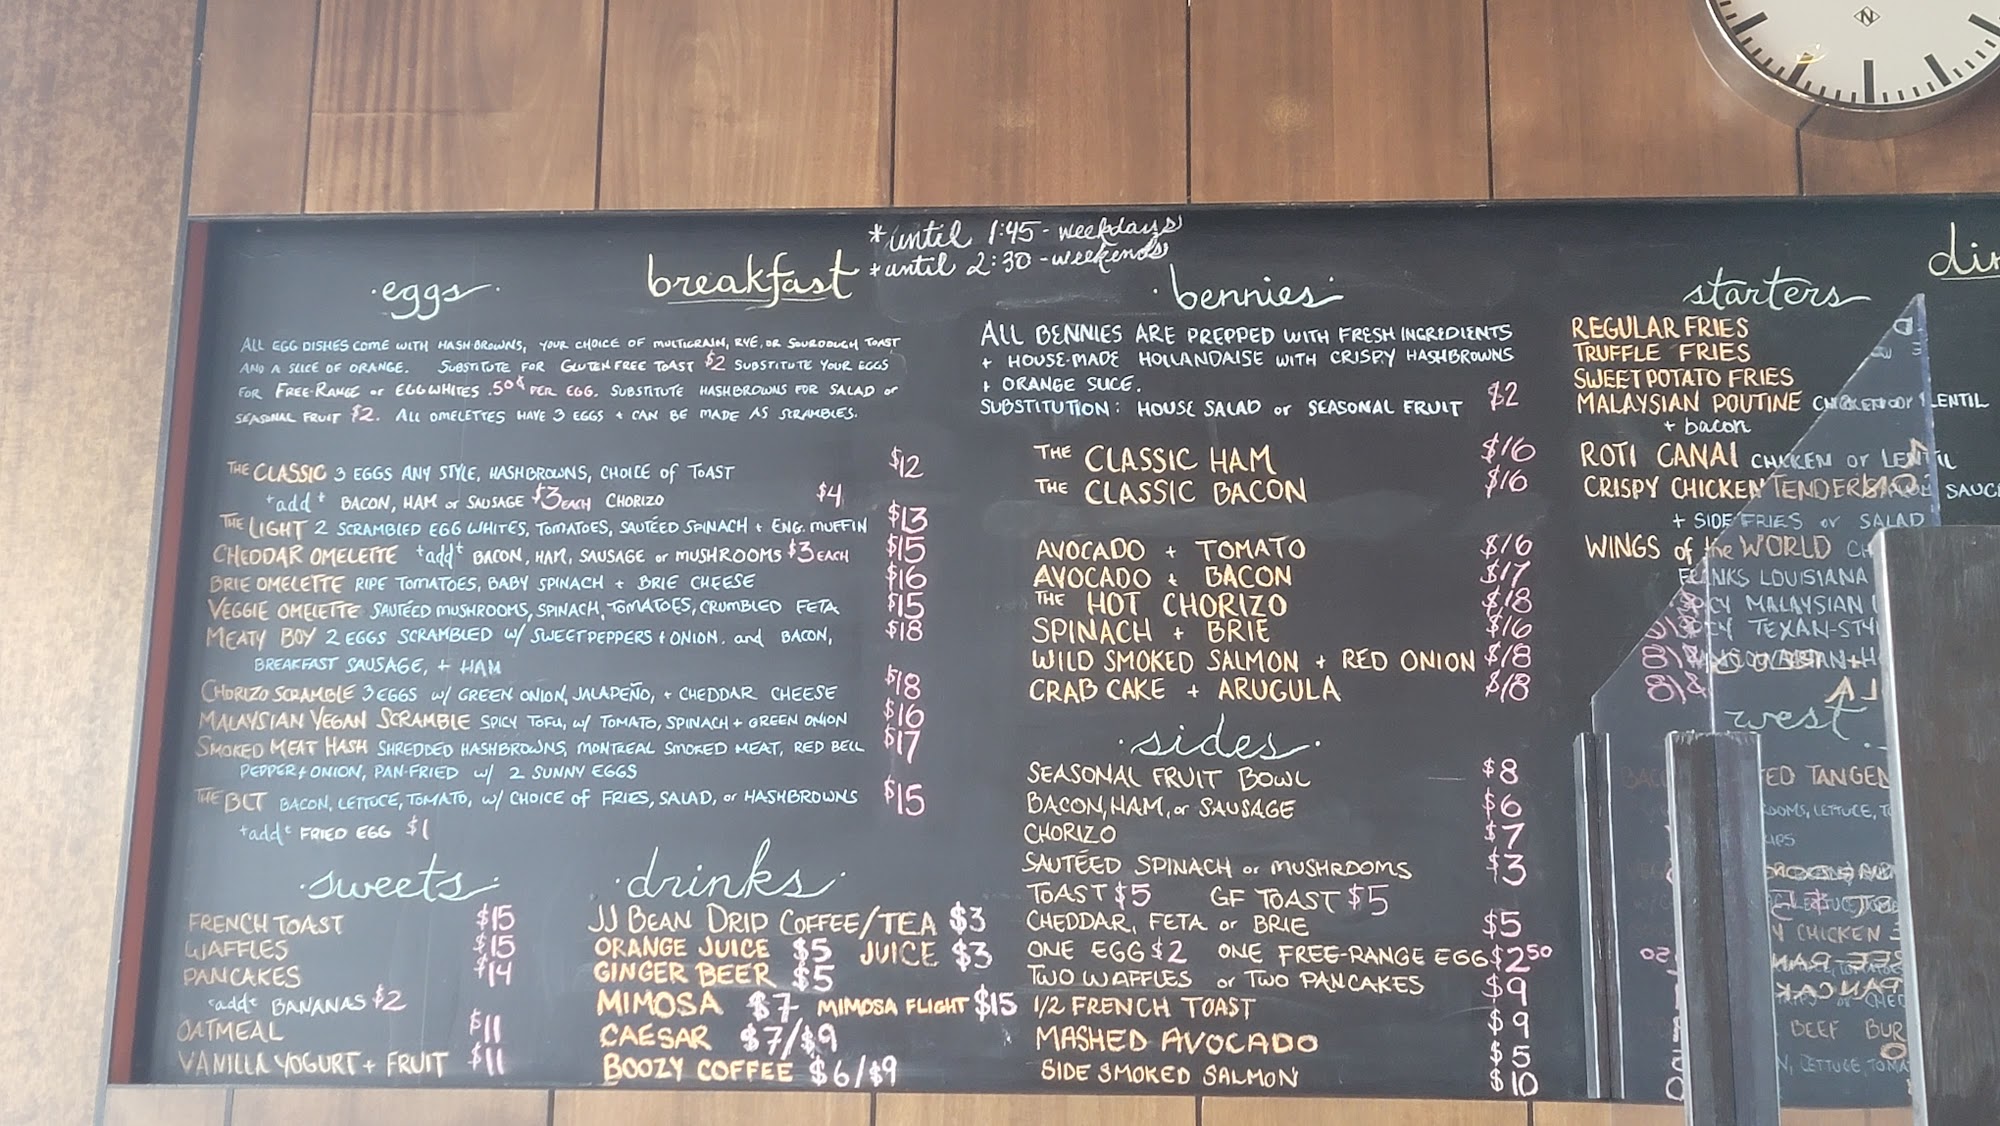 *until 1:45 - weekdays
*until 2:30 - weekends
breakfast
·eggs·
ALL EGG DISHES COME WITH HASHBROWNS, YOUR CHOICE OF MULTIGRAIN, RYE, OR SOURDOUGH TOAST
AND A SLICE OF ORANGE. SUBSTITUTE FOR GLUTEN FREE TOAST $2 SUBSTITUTE YOUR EGGS
FOR FREE-RANGE or EGGWHITES .50¢ PER EGG. SUBSTITUTE HASHBROWNS FOR SALAD or
SEASONAL FRUIT $2. ALL OMELETTES HAVE 3 EGGS + CAN BE MADE AS SCRAMBLES.
THE CLASSIC 3 EGGS ANY STYLE, HASHBROWNS, CHOICE of TOAST $12
+add+ BACON, HAM or SAUSAGE $3 EACH CHORIZO $4
THE LIGHT 2 SCRAMBLED EGG WHITES, TOMATOES, SAUTÉED SPINACH + ENG. MUFFIN $13
CHEDDAR OMELETTE +add+ BACON, HAM, SAUSAGE or MUSHROOMS $3 EACH $15
BRIE OMELETTE RIPE TOMATOES, BABY SPINACH + BRIE CHEESE $16
VEGGIE OMELETTE SAUTÉED MUSHROOMS, SPINACH, TOMATOES, CRUMBLED FETA $15
MEATY BOY 2 EGGS SCRAMBLED W/ SWEET PEPPERS + ONION. and BACON, $18
BREAKFAST SAUSAGE, + HAM
CHORIZO SCRAMBLE 3 EGGS W/ GREEN ONION, JALAPEÑO, + CHEDDAR CHEESE $18
MALAYSIAN VEGAN SCRAMBLE SPICY TOFU, W/ TOMATO, SPINACH + GREEN ONION $16
SMOKED MEAT HASH SHREDDED HASHBROWNS, MONTREAL SMOKED MEAT, RED BELL $17
PEPPER + ONION, PAN-FRIED W/ 2 SUNNY EGGS
THE BLT BACON, LETTUCE, TOMATO, W/ CHOICE of FRIES, SALAD, or HASHBROWNS $15
+add+ FRIED EGG $1
·sweets·
FRENCH TOAST $15
WAFFLES $15
PANCAKES $14
+add+ BANANAS $2
OATMEAL $11
VANILLA YOGURT + FRUIT $11
·drinks·
JJ BEAN DRIP COFFEE/TEA $3
ORANGE JUICE $5 JUICE $3
GINGER BEER $5
MIMOSA $7 MIMOSA FLIGHT $15
CAESAR $7/$9
BOOZY COFFEE $6/$9
·bennies·
ALL BENNIES ARE PREPPED WITH FRESH INGREDIENTS
+ HOUSE-MADE HOLLANDAISE WITH CRISPY HASHBROWNS
+ ORANGE SLICE.
SUBSTITUTION: HOUSE SALAD or SEASONAL FRUIT $2
THE CLASSIC HAM $16
THE CLASSIC BACON $16
AVOCADO + TOMATO $16
AVOCADO + BACON $17
THE HOT CHORIZO $18
SPINACH + BRIE $16
WILD SMOKED SALMON + RED ONION $18
CRAB CAKE + ARUGULA $18
·sides·
SEASONAL FRUIT BOWL $8
BACON, HAM, or SAUSAGE $6
CHORIZO $7
SAUTÉED SPINACH or MUSHROOMS $3
TOAST $5 GF TOAST $5
CHEDDAR, FETA or BRIE $5
ONE EGG $2 ONE FREE-RANGE EGG $2.50
TWO WAFFLES or TWO PANCAKES $9
1/2 FRENCH TOAST $9
MASHED AVOCADO $5
SIDE SMOKED SALMON $10
starters
REGULAR FRIES
TRUFFLE FRIES
SWEET POTATO FRIES
MALAYSIAN POUTINE CHICKEN or LENTIL
+ bacon
ROTI CANAI CHICKEN or LENTIL
CRISPY CHICKEN TENDERS
+ SIDE FRIES or SALAD
WINGS of the WORLD
FRANKS LOUISIANA
MALAYSIAN
TEXAN-STY
west